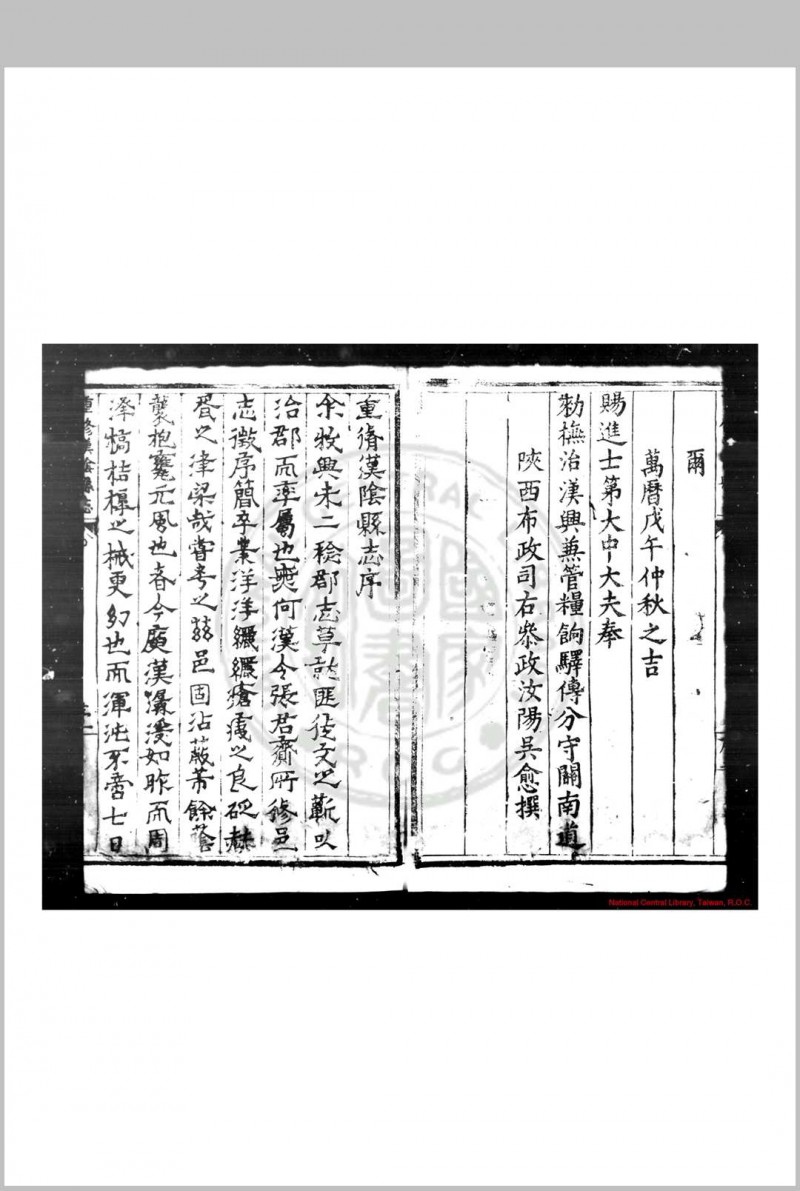 爾
萬曆戊午仲秋之吉
賜進士第大中大夫奉
勑撫治漢興兼管糧餉驛傳分守關南道
陝西布政司右叅政汝陽吳愈撰
重脩漢陰縣志序
余牧興未二稔郡志草就匪徒文之蘄以
治郡而率屬也無何漢令張君齎所修邑
志徵序簡卒業洋洋纚纚瘡痍之良砭赫
胥之津梁哉嘗考之茲邑固沾蔽芾餘蔭
襲抱甕元風也春今廣漢瀑漫如昨而周
澤犒桔橰之械更幻也而渾沌不啻七日
重修漢陰縣志
National Central Library, Taiwan, R.O.C.